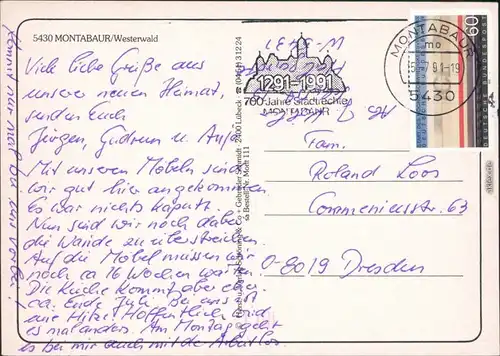 5430 MONTABAUR/Westerwald
Viele liebe Grüße aus
unserer neuen Heimat,
senden Euch
Jürgen, Gudrun u. 
Mit unseren Möbeln sind
wir gut hier angekommen.
Es war nichts kaputt.
Nun sind wir noch dabei
die Wände zu überstreichen.
Auf die Möbel müssen wir
noch ca 16 Wochen warten
Die Küche kommt aber eher
ca. Ende Juli. Bei uns ist
eine Hitze. Hoffentlich wird
es mal anders. Am Montag geht
es bei mir auch mit der Arbeit los.
kommt nur mal bei uns vorbei!
1291-1991
700 Jahre Stadtrechte
MONTABAUR
MONTABAUR
mo
-5.-7.91-19
5430
60
DEUTSCHE BUNDESPOST
Fam.
Roland Loos
Comeniusstr. 63
O-8019 Dresden